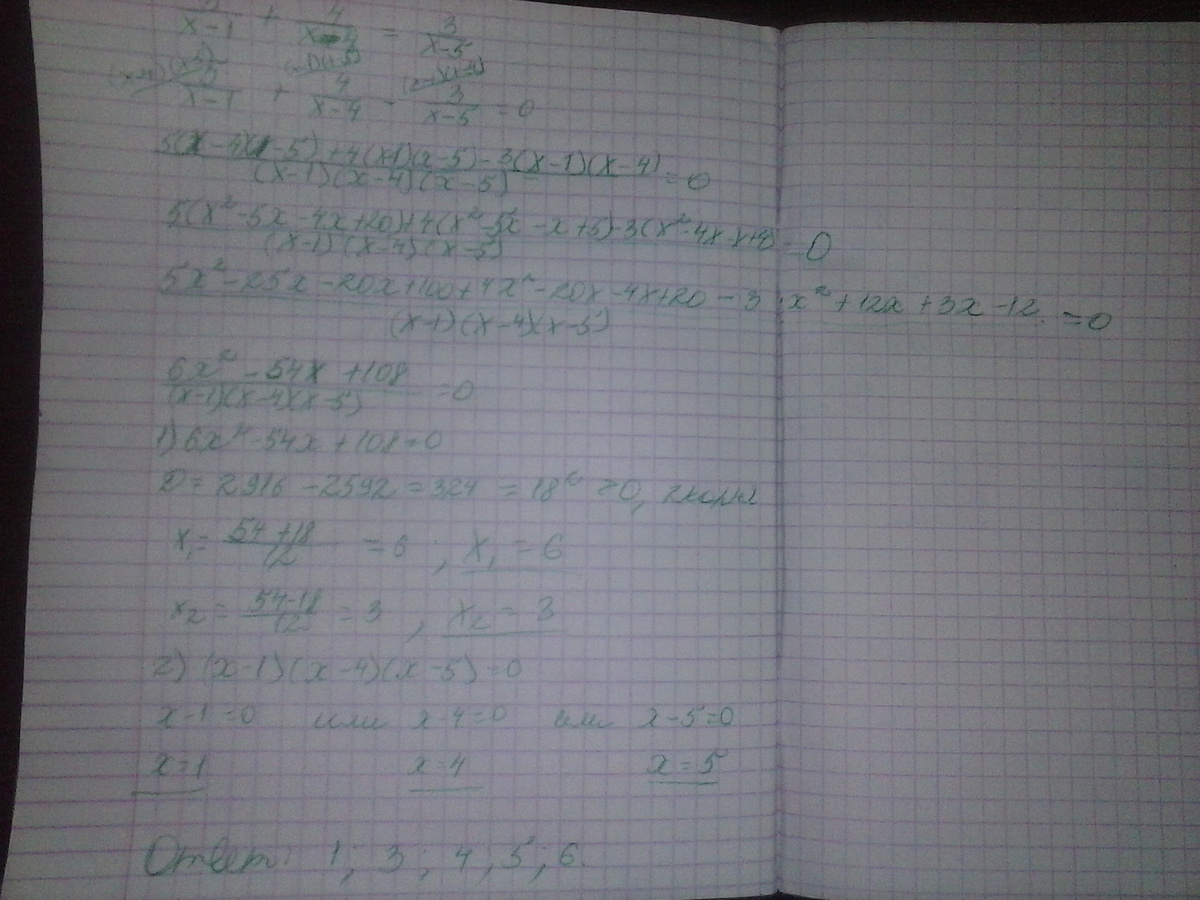 /(x-1) + 4/(x-4) = 3/(x-5)
5/(x-1) + 4/(x-4) - 3/(x-5) = 0
(5(x-4)(x-5)+4(x-1)(x-5)-3(x-1)(x-4))/((x-1)(x-4)(x-5)) = 0
(5(x²-5x-4x+20)+4(x²-5x-x+5)-3(x²-4x-x+4))/((x-1)(x-4)(x-5)) = 0
(5x²-25x-20x+100+4x²-20x-4x+20-3x²+12x+3x-12)/((x-1)(x-4)(x-5)) = 0
(6x²-54x+108)/((x-1)(x-4)(x-5)) = 0
1) 6x²-54x+108=0
D = 2916-2592 = 324 = 18² >0, 2 корня
x₁ = (54+18)/12 = 6 ; x₁ = 6
x₂ = (54-18)/12 = 3 , x₂ = 3
2) (x-1)(x-4)(x-5)=0
x-1=0 или x-4=0 или x-5=0
x=1 x=4 x=5
Ответ: 1; 3; 4; 5; 6.